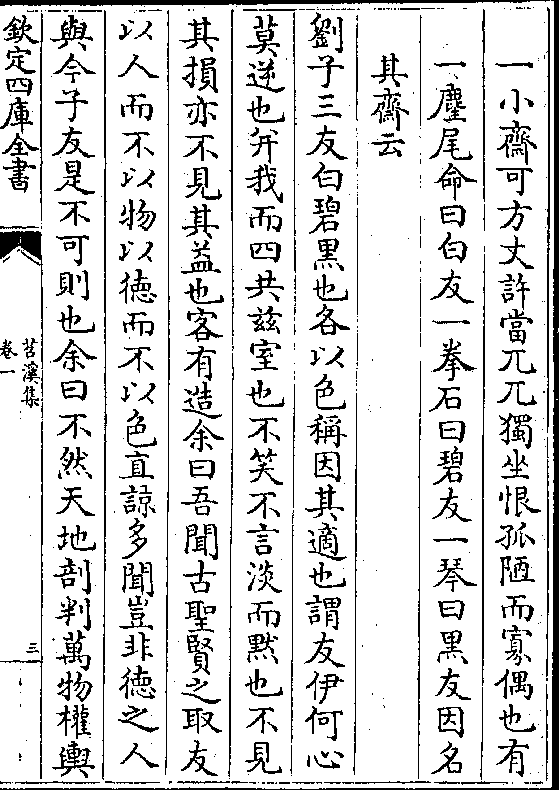 一小齋可方丈許當兀兀獨坐恨孤陋而寡偶也有
一麈尾命曰白友一拳石曰碧友一琴曰黑友因名
其齋云
劉子三友白碧黑也各以色稱因其適也謂友伊何心
莫逆也并我而四共兹室也不笑不言淡而黙也不見
其損亦不見其益也客有造余曰吾聞古聖賢之取友
以人而不以物以徳而不以色直諒多聞豈非徳之人
與今子友是不可則也余曰不然天地剖判萬物權輿
欽定四庫全書
苕溪集
卷一
三